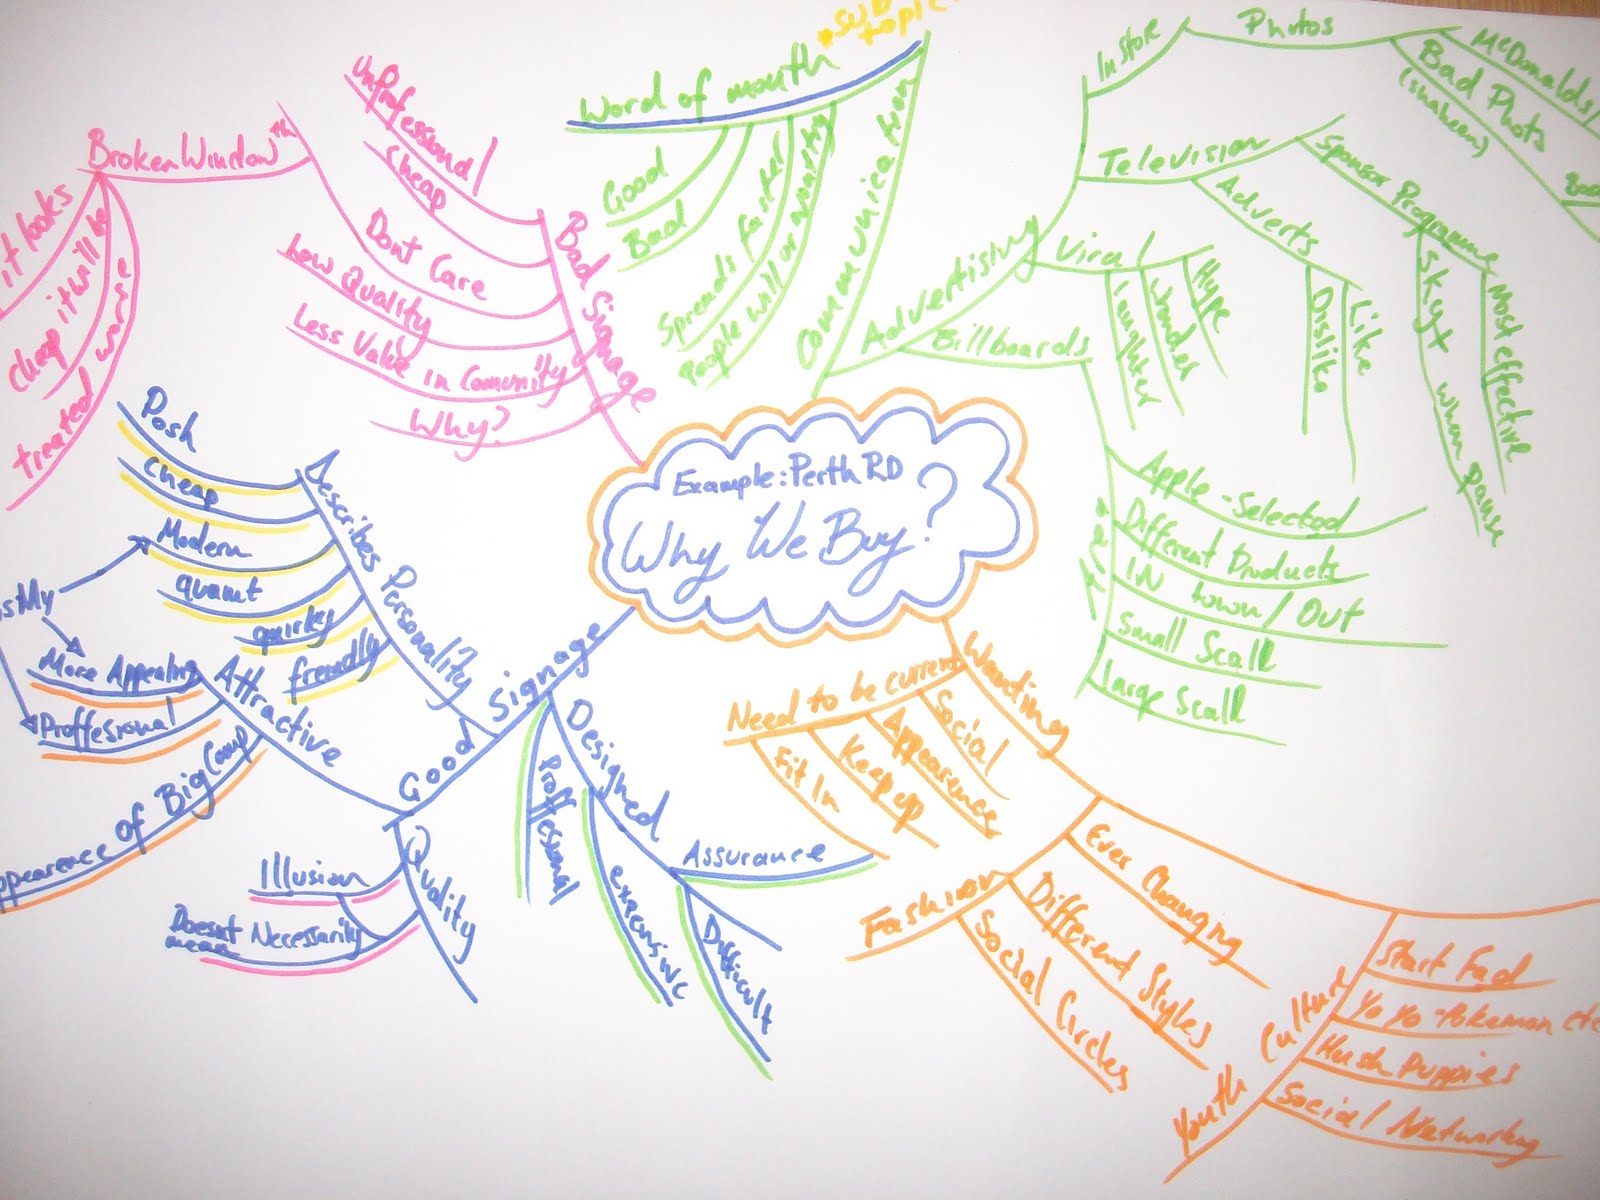 Example: Perth RD
Why We Buy?
Bad Signage
UnProfessional
Cheap
Dont Care
Low Quality
Less Value in Comunity
Why?
Broken Window th
it looks
Cheap it will be
treated worse
Word of mouth
*SUB
topic
Good
Bad
Spreads faster
People will or
Communication
Advertising
Instore
Photos
McDonalds/
Bad Photos
(shaheens)
Television
Sponsor Programme
Most effective
Skyt when pause
Adverts
Like
Dislike
Viral
Hype
Wonder
Laughter
Billboards
Area
Apple - Selected
Different Products
IN town / Out
Small Scall
Large Scall
Wanting
Need to be current
Social
Appearence
Keep up
Fit In
Fashion
Ever Changing
Different Styles
Social Circles
Youth Culture
Start Fad
Yo Yo - Pokemon etc
Hush Puppies
Social Networking
Good Signage
Describes Personality
Posh
cheap
Modern
quamt
quirky
friendly
Attractive
More Appealing
Proffesional
Appearence of Big Comp
Quality
Illusion
Doesnt Necessarily
mean
Designed
Proffesional
expensive
Assurance
Difficult